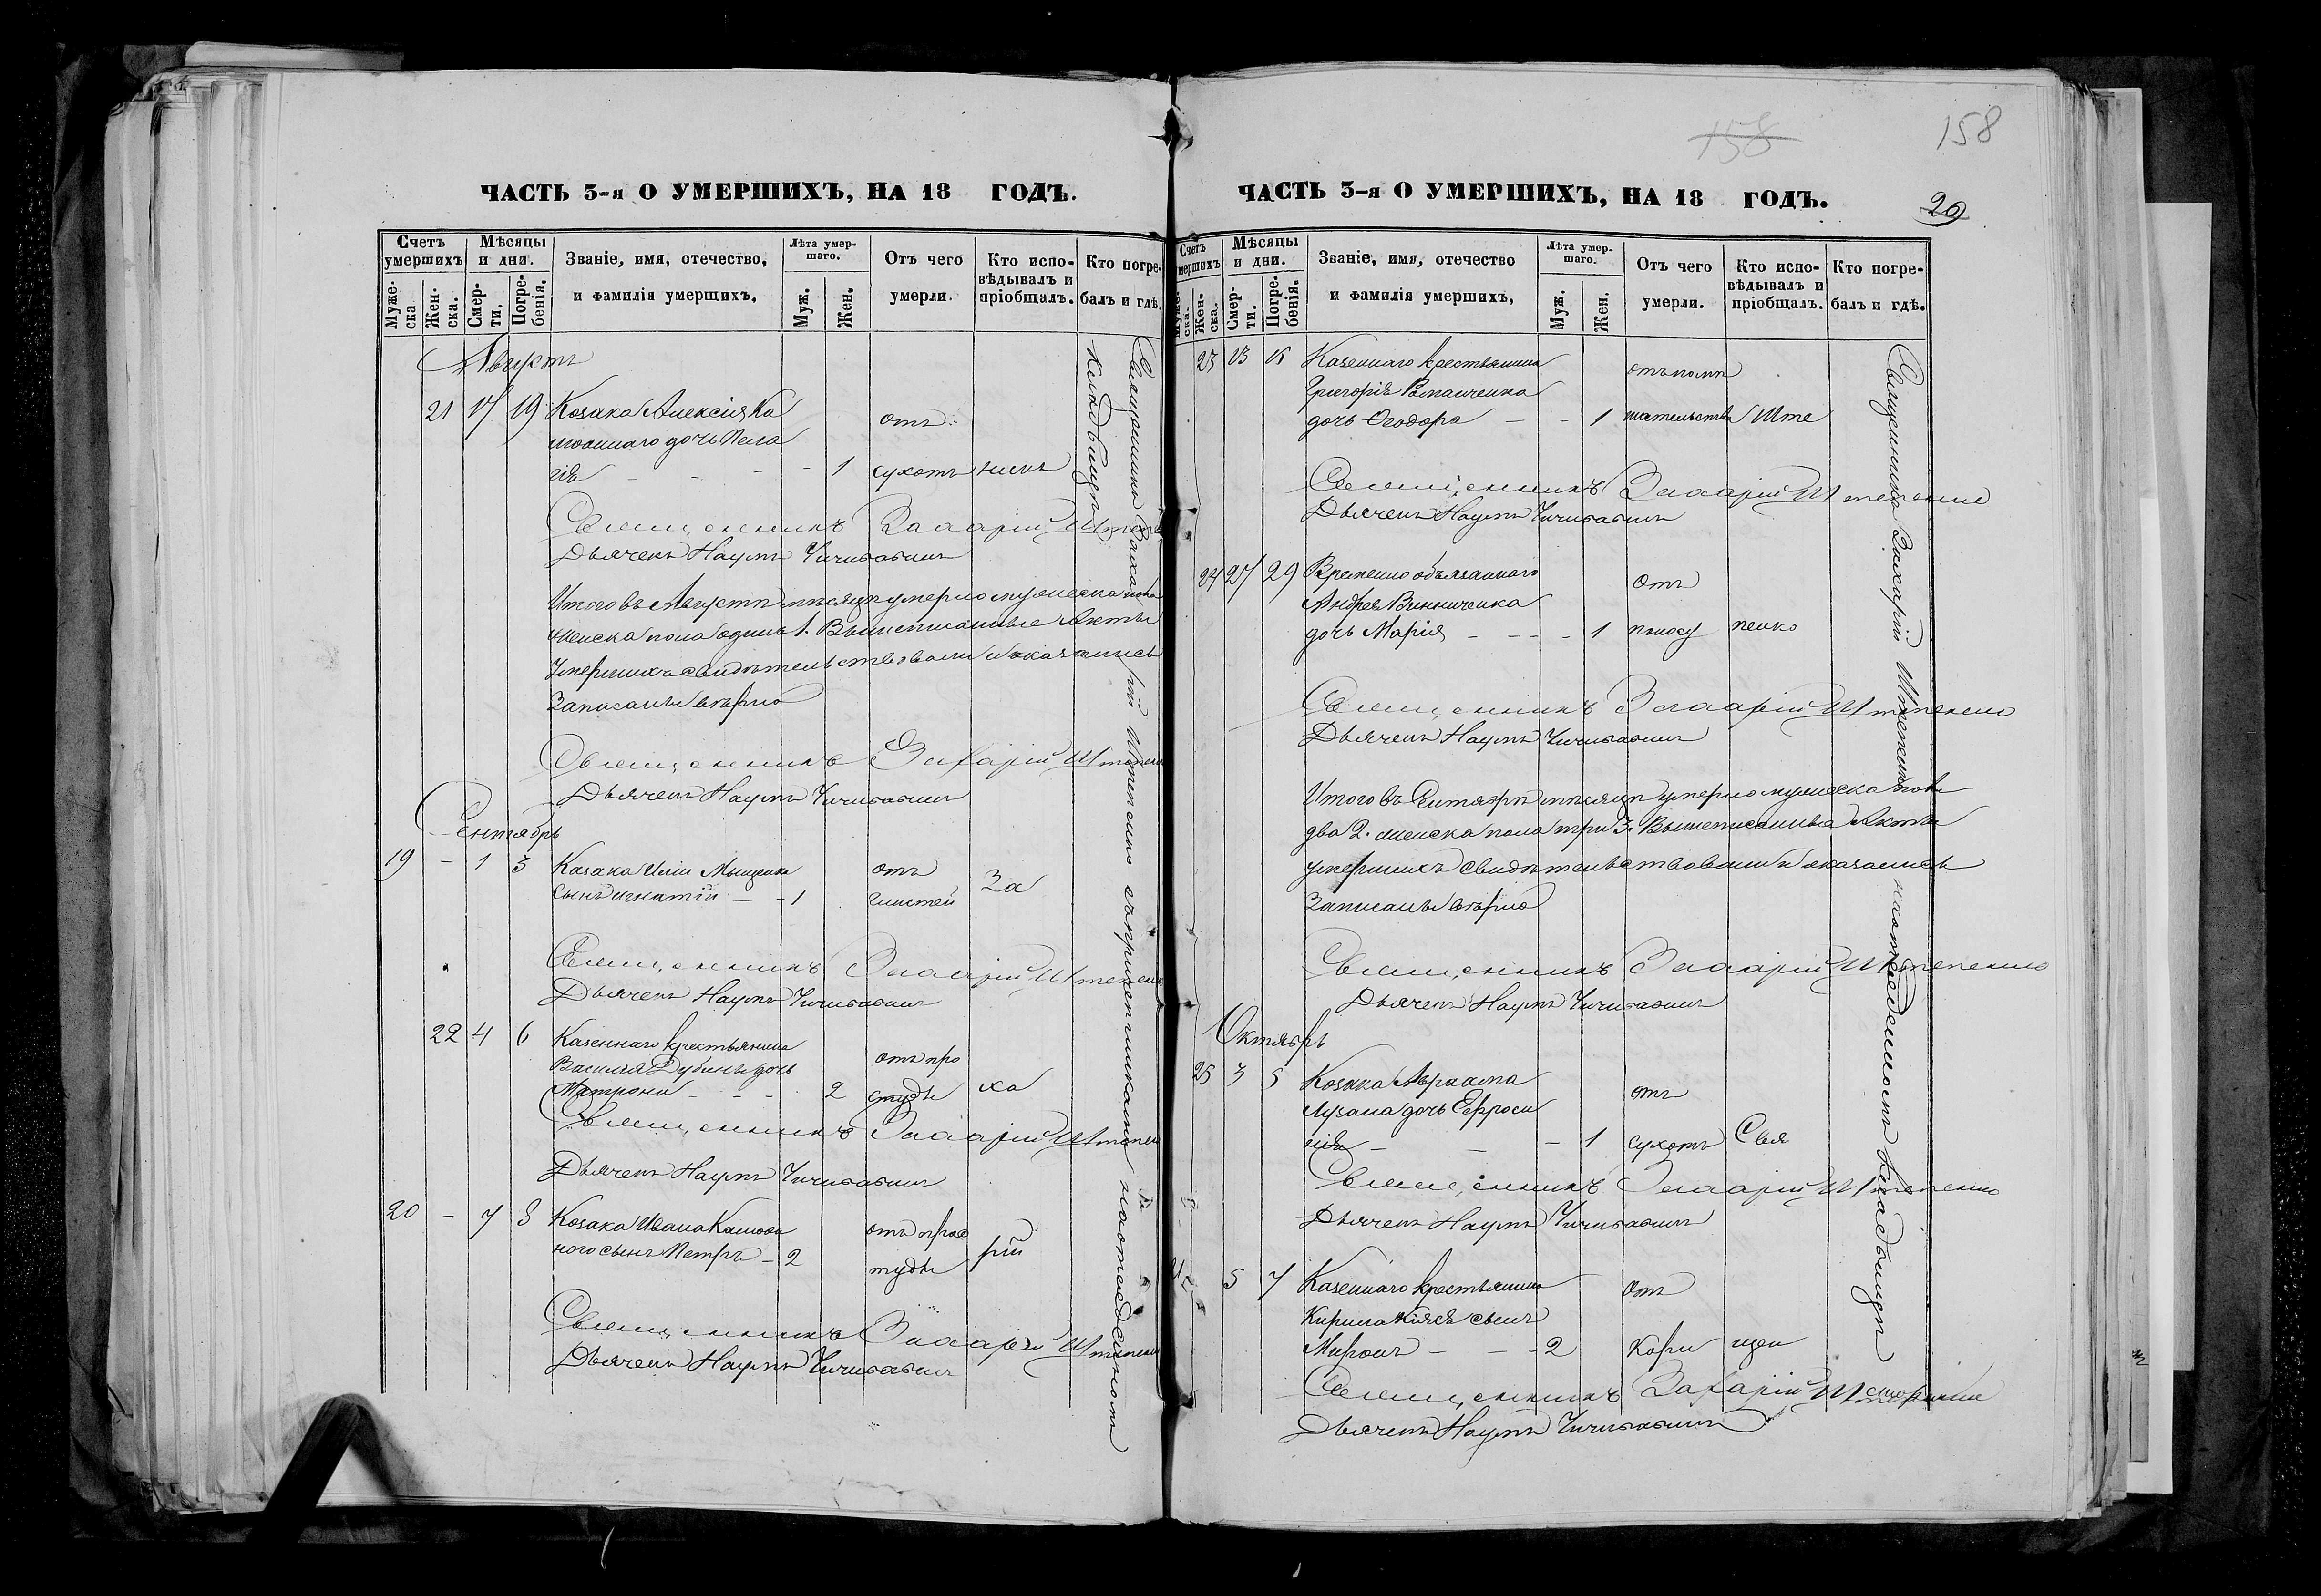 158
158
ЧАСТЬ 3-я О УМЕРШИХЪ, НА 18 ГОДЪ.
Счетъ умершихъ
Муже-ска
Жен-ска.
Мѣсяцы и дни.
Смер-ти.
Погре-бенія.
Званіе, имя, отечество,
и фамилія умерщихъ.
Лѣта умер-шаго.
Муж.
Жен.
Отъ чего
умерли.
Кто испо-вѣдывалъ и пріобщалъ.
Кто погре-
балъ и гдѣ.
Августъ
21 17 19 Козака Алексія Ка
дочь Пела
гія - - - 1 отъ сухотъ
Священникъ Захарій Штепенко
Дьячекъ Наумъ
Итого въ Августѣ мѣсяцѣ умерло мужеска пола
женска пола одинъ 1. Вышеписанные Акты
Умершихъ свидѣтельствовали и оказались
Записаны вѣрно
Священникъ Захарій
Дьячекъ Наумъ
Сентябрь
19 - 1 3 Козака Иліи
сынъ Игнатій - - 1 отъ глистей За
Священникъ Захарій
Дьячекъ Наумъ
22 4 6 Казеннаго крестьянина
Василія Дубины дочь
Матрона - - - 2 отъ про студы ха
Священникъ Захарій
Дьячекъ Наумъ
20 - 7 8 Козака Ивана
ного сынъ Петръ - 2 отъ прос туды рій
Священникъ Захарій
Дьячекъ Наумъ
Священникъ Захарій Штепенко съ причетниками на отведенномъ
кладбищѣ
ЧАСТЬ 3-я О УМЕРШИХЪ, НА 18 ГОДЪ.
20
Счетъ умершихъ
Муже-ска.
Жен-ска.
Мѣсяцы и дни.
Смер-ти.
Погре-бенія.
Званіе, имя, отечество
и фамилія умершихъ,
Лѣта умер-шаго.
Муж.
Жен.
Отъ чего
умерли.
Кто испо-вѣдывалъ и пріобщалъ.
Кто погре-
балъ и гдѣ.
23 13 15 Казеннаго крестьянина
Григорія
дочь Ѳеодора - - 1 Ште
Священникъ Захарій Штепенко
Дьячекъ Наумъ
24 27 29 Временно обязаннаго
Андрея Винниченка
дочь Марія - - - - 1 отъ поносу пенко
Священникъ Захарій Штепенко
Дьячекъ Наумъ
Итого въ Сентябрѣ мѣсяцѣ умерло мужеска пола
два 2. женска пола три 3. Вышеписанные Акты
умершихъ свидѣтельствовали и оказались
Записаны вѣрно
Священникъ Захарій Штепенко
Дьячекъ Наумъ
Октябрь
25 3 5 Козака Авраама
дочь Евфроси
нія - - - 1 отъ сухотъ Свя
Священникъ Захарій Штепенко
Дьячекъ Наумъ
5 7 Казеннаго крестьянина
Кирила сынъ
Миронъ - - - 2 отъ кори щен
Священникъ Захарій Штепенко
Дьячекъ Наумъ
Священникъ Захарій Штепенко на отведенномъ кладбищѣ